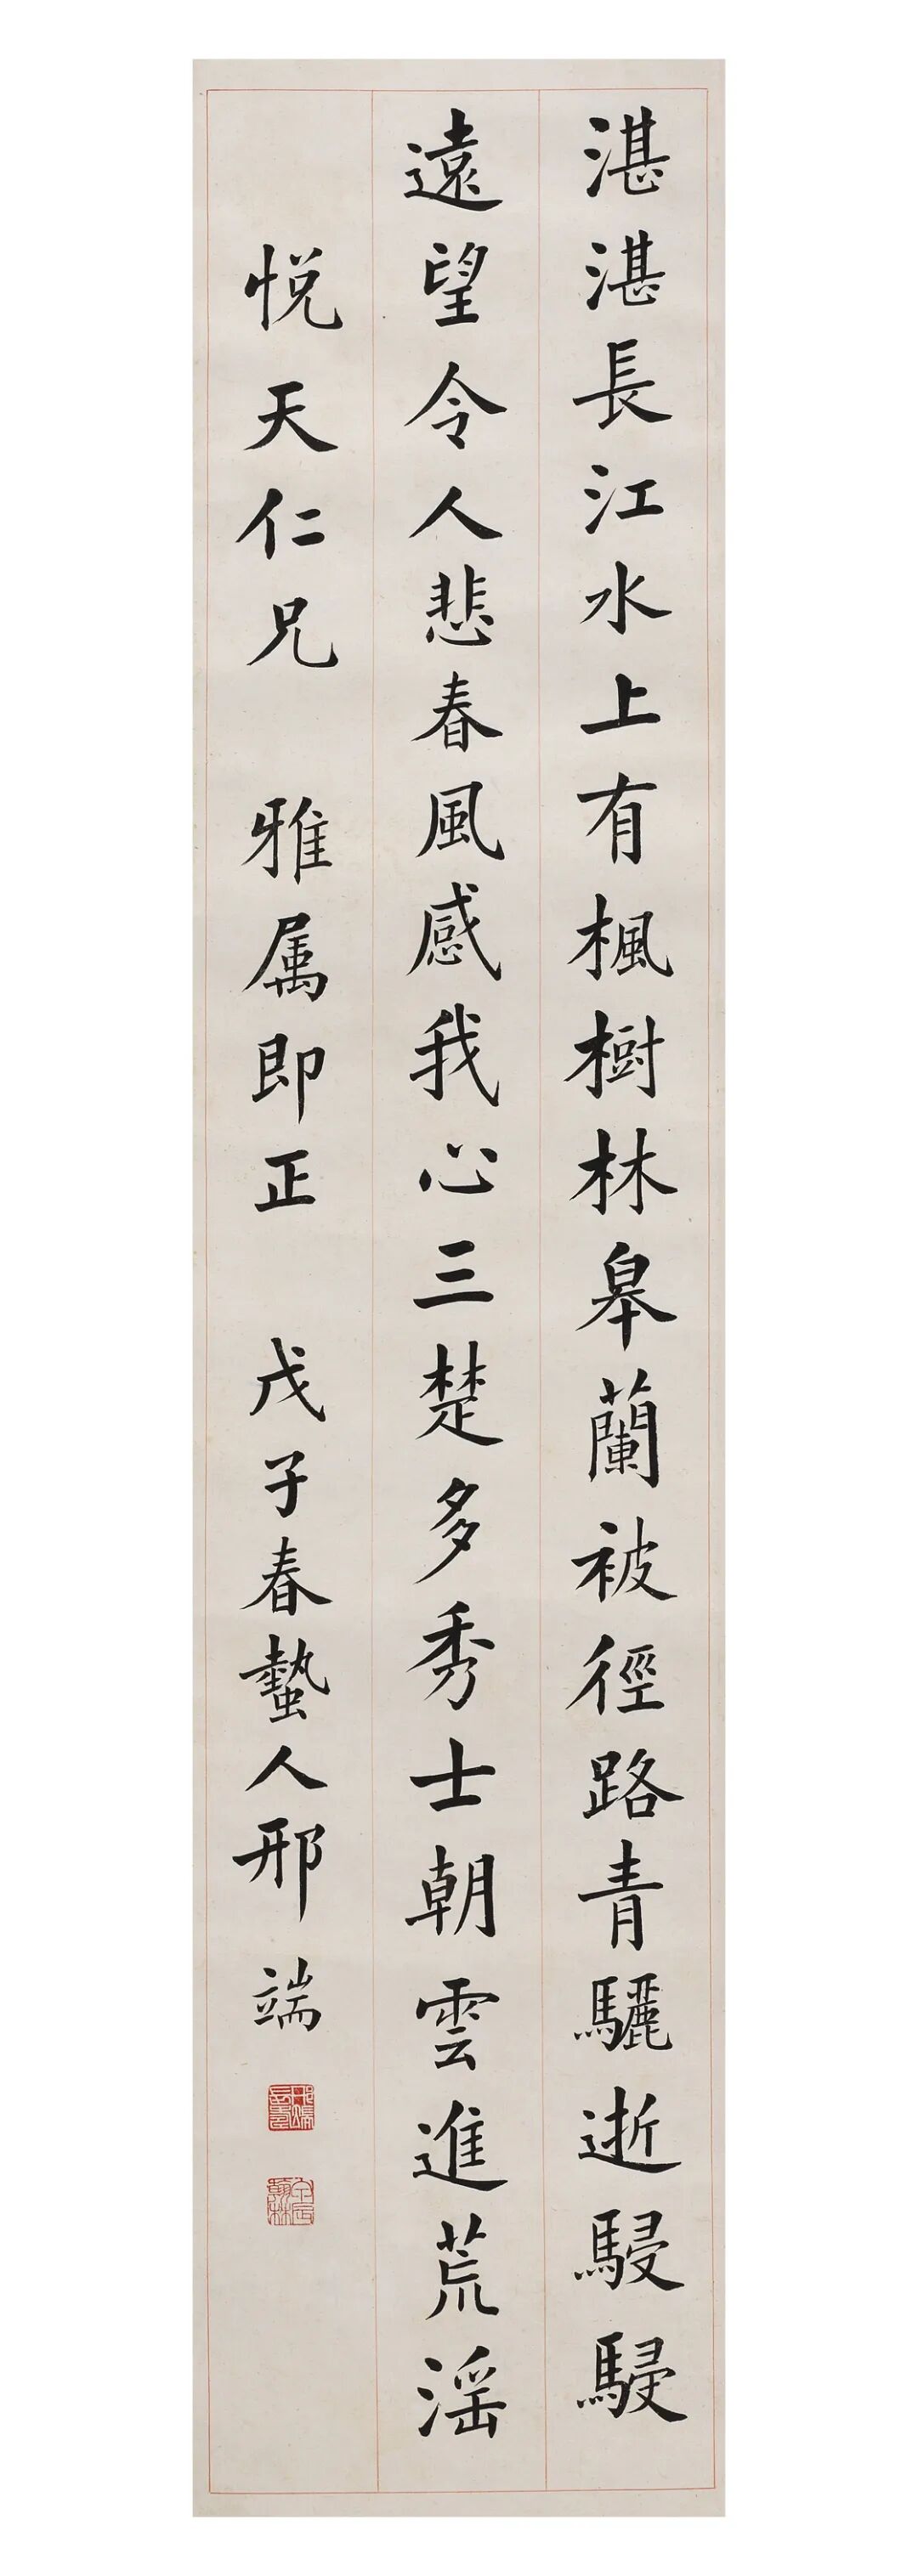 湛湛長江水上有楓樹林皋蘭被徑路青驪逝駸駸
遠望令人悲春風感我心三楚多秀士朝雲進荒淫
悅天仁兄 雅属即正 戊子春蟄人邢端